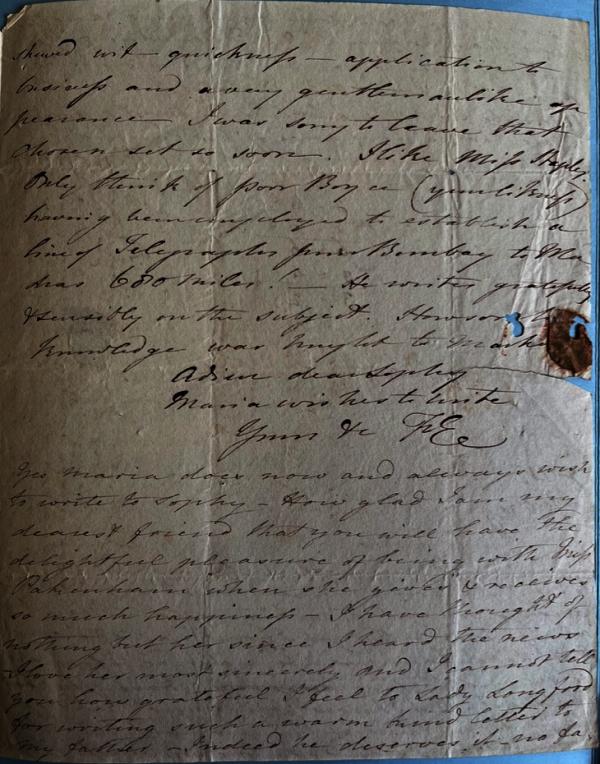 shewed wit - quickness - application to
business and a very gentlemanlike ap
pearance I was sorry to leave that
chosen set so soon. I like Miss
Only think of poor Boyce (your likness)
having been employed to establish a
line of Telegraphs from Bombay to Ma
dras 680 miles! - He writes gratefully
& sensibly on the subject. How soon
Knowledge was brought to Market
Adieu dear Sophy
Maria wishes to write
Yours &c RLE
Yes Maria does now and always wish
to write to Sophy - How glad I am my
dearest friend that you will have the
delightful pleasure of being with Miss
Pakenham when she gives & receives
so much happiness - I have thought of
nothing but her since I heard the news
I love her most sincerely and I cannot tell
you how grateful I feel to Lady Longford
for writing such a warm kind letter to
my father - Indeed he deserves it no fa